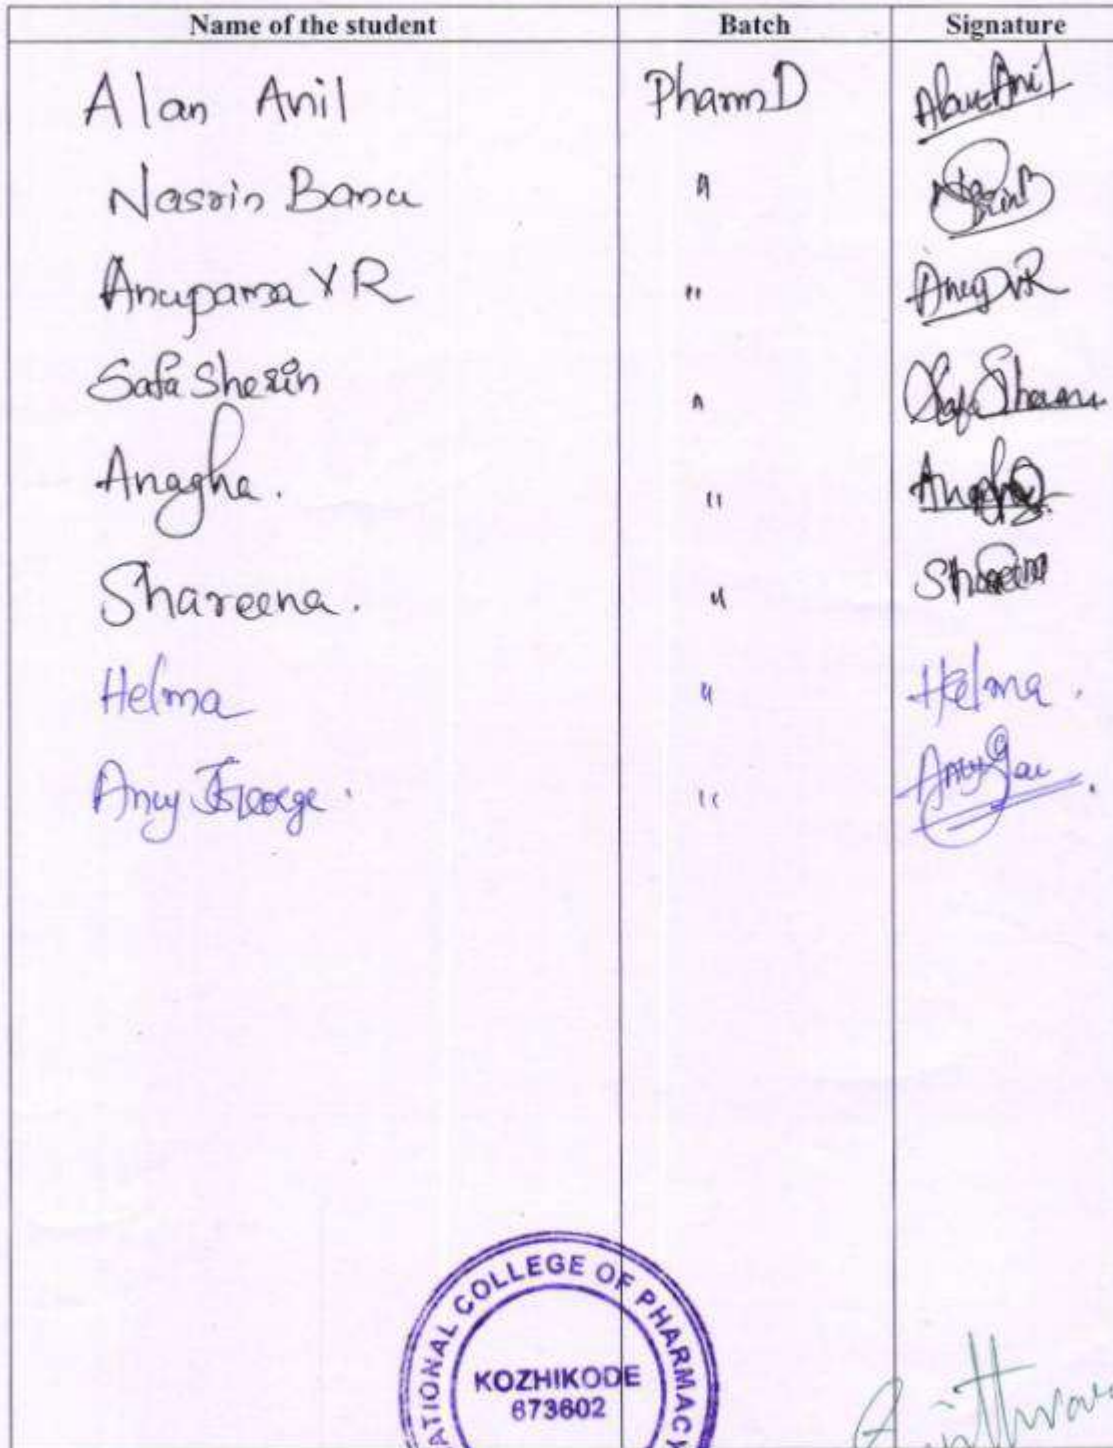 Name of the student Batch Signature
Alan Anil PharmD Alan Anil
Nasrin Banu "
Anupama V R " Anup VR
Safa Sherin " Safa Sherin
Anagha. " Anagha
Shareena. " Shareena
Helma " Helma.
Anuy George. "
ATIONAL COLLEGE OF PHARMACY
KOZHIKODE
673602